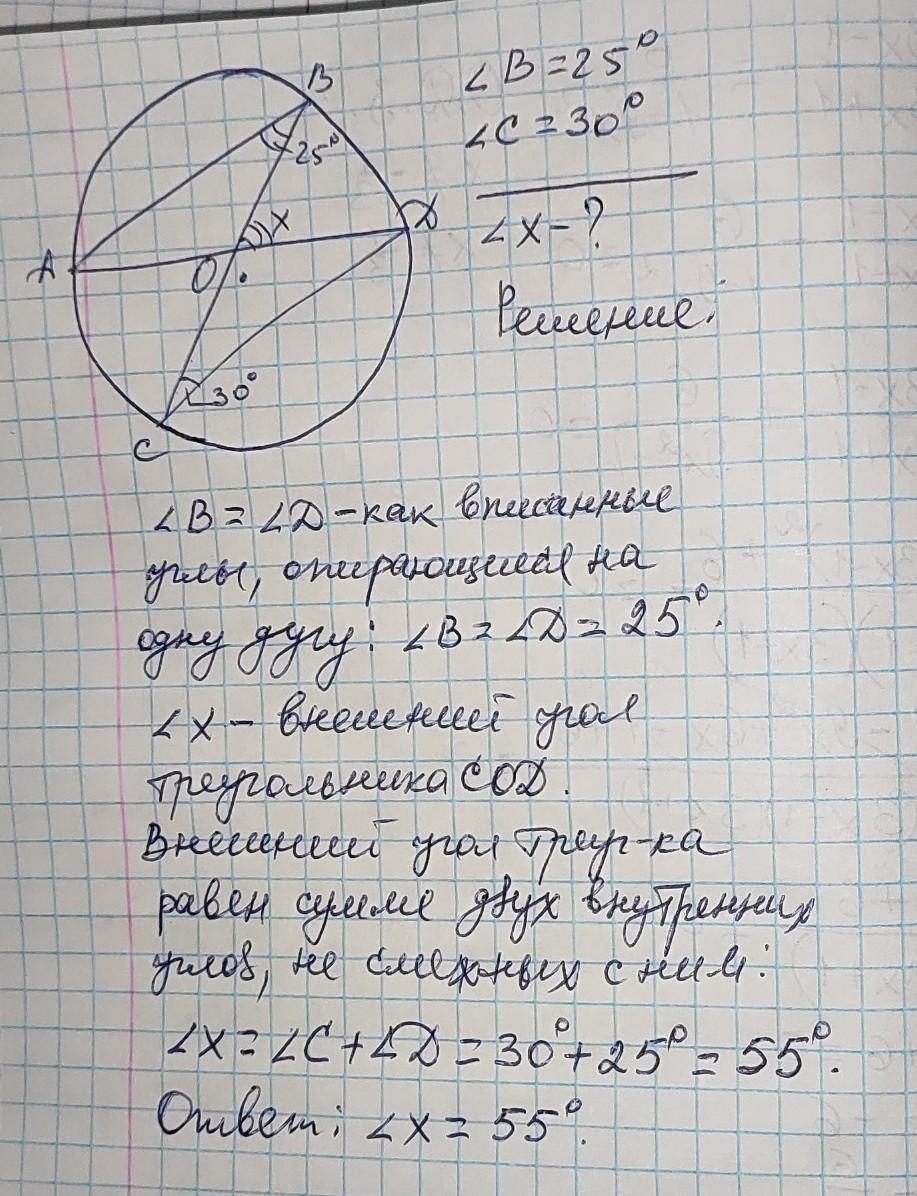 B
25°
A
X
D
O
30°
C
∠B=25°
∠C=30°
∠X-?
Решение:
∠B=∠D-как вписанные
углы, опирающиеся на
одну дугу: ∠B=∠D=25°.
∠X- внешний угол
треугольника COD.
Внешний угол треуг-ка
равен сумме двух внутренних
углов, не смежных с ним:
∠X=∠C+∠D=30°+25°=55°.
Ответ: ∠X=55°.